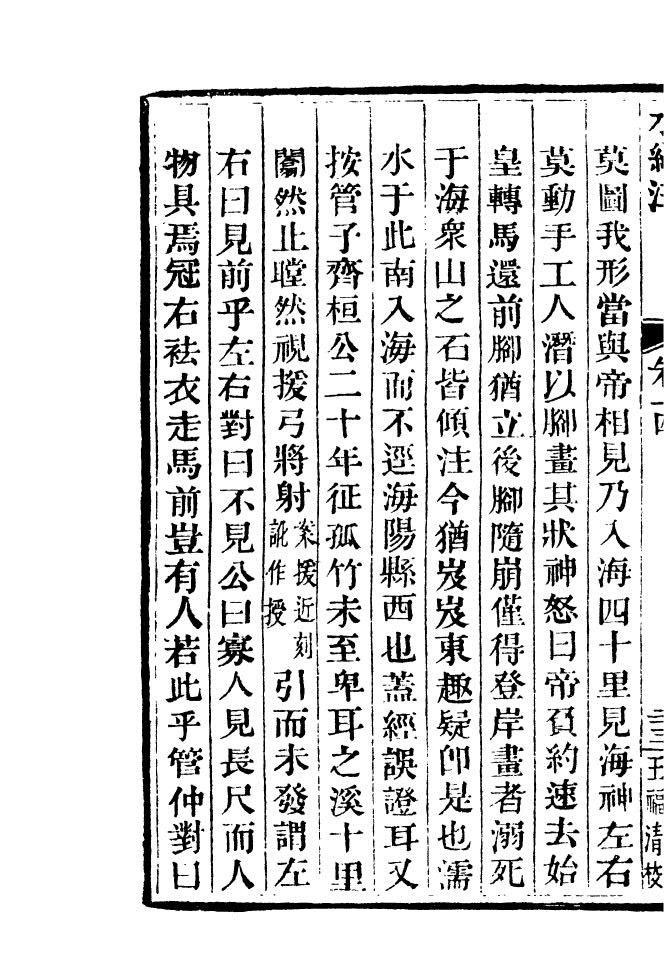 水經注 卷十四 三三 王福清校
莫圖我形當與帝相見乃入海四十里見海神左右
莫動手工人潛以腳畫其狀神怒曰帝負約速去始
皇轉馬還前腳猶立後腳隨崩僅得登岸畫者溺死
于海衆山之石皆傾注今猶岌岌東趣疑即是也濡
水于此南入海而不逕海陽縣西也蓋經誤證耳又
按管子齊桓公二十年征孤竹未至卑耳之溪十里
闟然止瞠然視援弓將射案援近刻訛作授引而未發謂左
右曰見前乎左右對曰不見公曰寡人見長尺而人
物具焉冠右袪衣走馬前豈有人若此乎管仲對曰